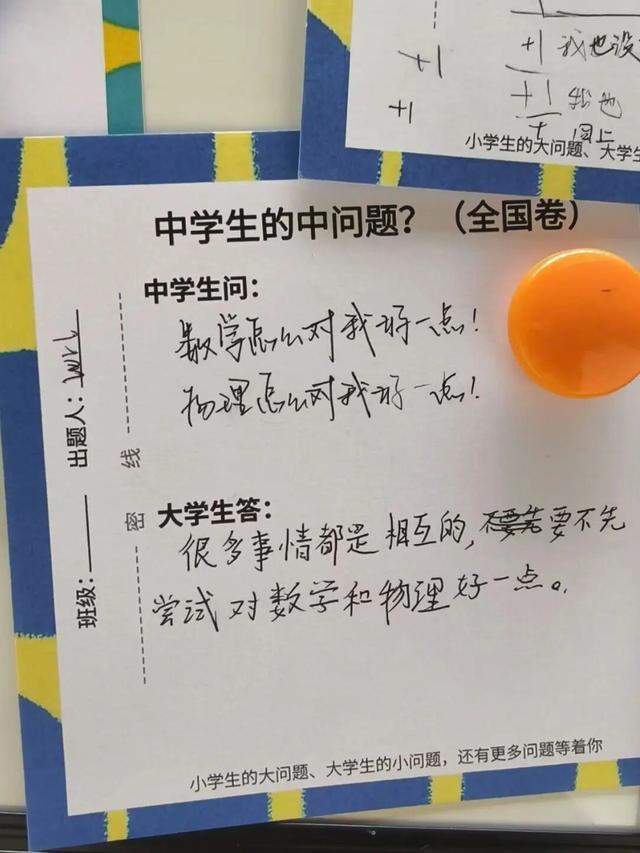 +1
+1
+1 我也没
+1 我也
+ 同上
小学生的大问题、大学生
中学生的中问题？（全国卷）
中学生问：
数学怎么对我好一点！
物理怎么对我好一点！
大学生答：
很多事情都是相互的，不要先要不先
尝试对数学和物理好一点。
小学生的大问题、大学生的小问题，还有更多问题等着你
出题人：
班级：
线
密